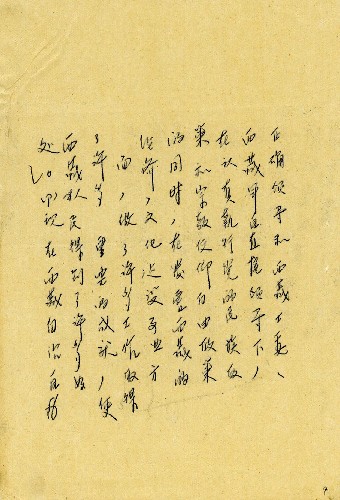 正确领导和西藏工委、
西藏军区直接领导下，
在认真执行党的民族政
策和宗教信仰自由政策
的同时，在发展西藏的
经济，文化建设事业方
面，做了许多工作取得
了许多重要的成就，使
西藏人民得到了许多好
处。现在西藏自治区筹